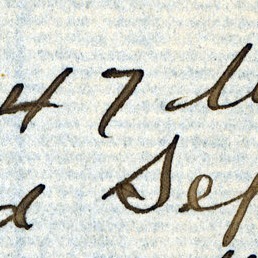 47 M
d Sep